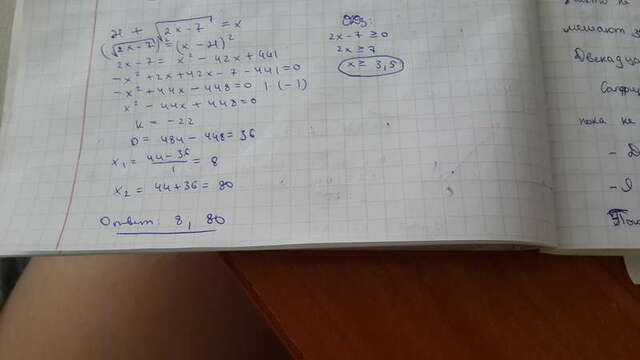 21 + √2x-7 = x
(√2x-7)² = (x - 21)²
2x-7 = x² - 42x + 441
-x² + 2x + 42x - 7 - 441 = 0
-x² + 44x - 448 = 0 | · (-1)
x² - 44x + 448 = 0
k = -22
D = 484 - 448 = 36
x₁ = (44 - 36)/1 = 8
x₂ = 44 + 36 = 80
Ответ: 8, 80
ОДЗ:
2x - 7 ≥ 0
2x ≥ 7
x ≥ 3,5
не
мешают
Двенадца
пока не
- Д
- Я